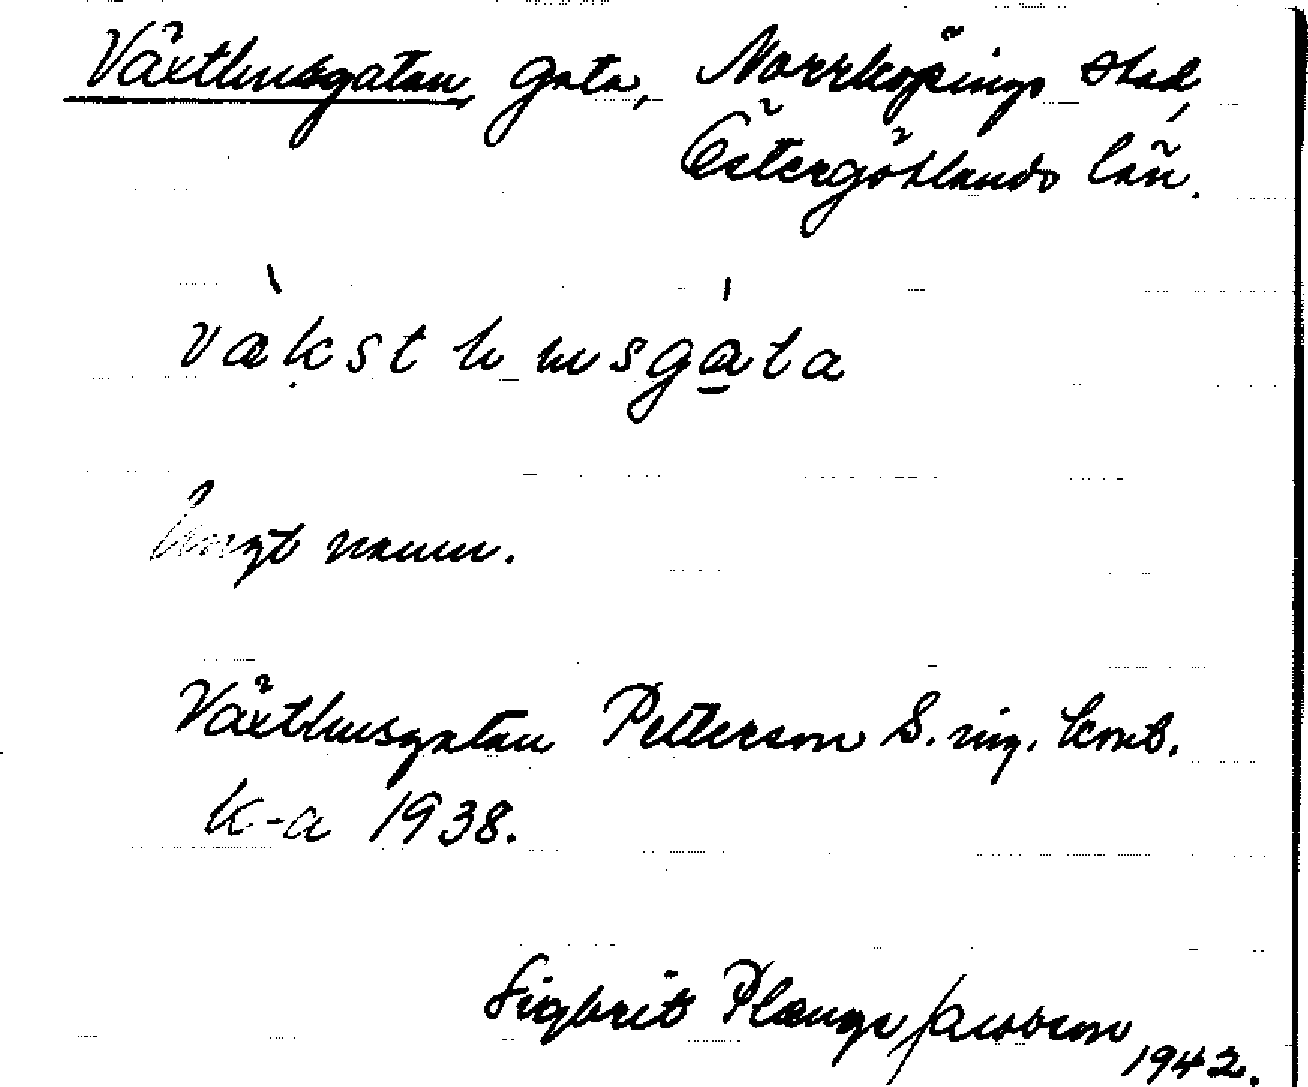 Växthusgatan, gata, Norrköpings stad,
Östergötlands län.
vækst husgata
Ungt namn.
Växthusgatan Petterson S. ing. tomt.
K-a 1938.
Sigbrit Plænge Jacobson
1942.